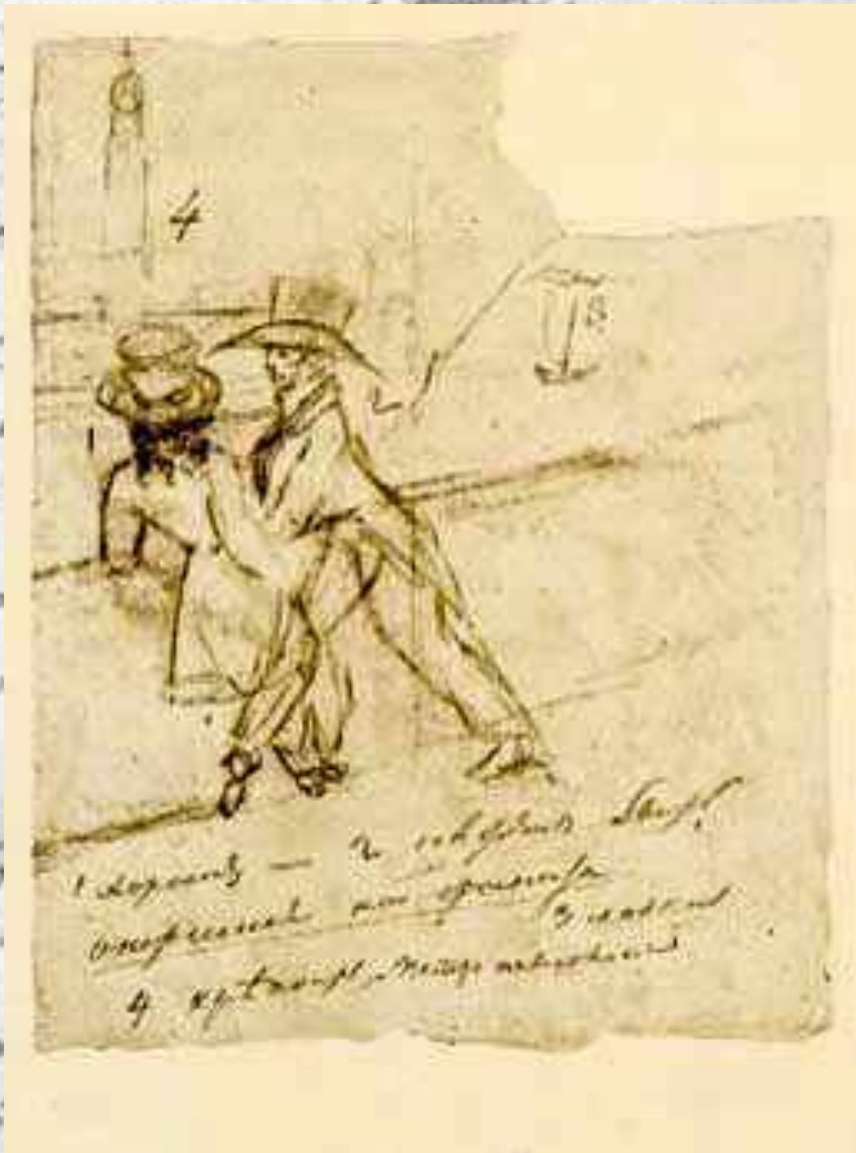 4
3.
2
1
1 хорошъ — 2 долженъ быть
опершися на гранитъ
3 лодка
4 крѣпость Петропавловская